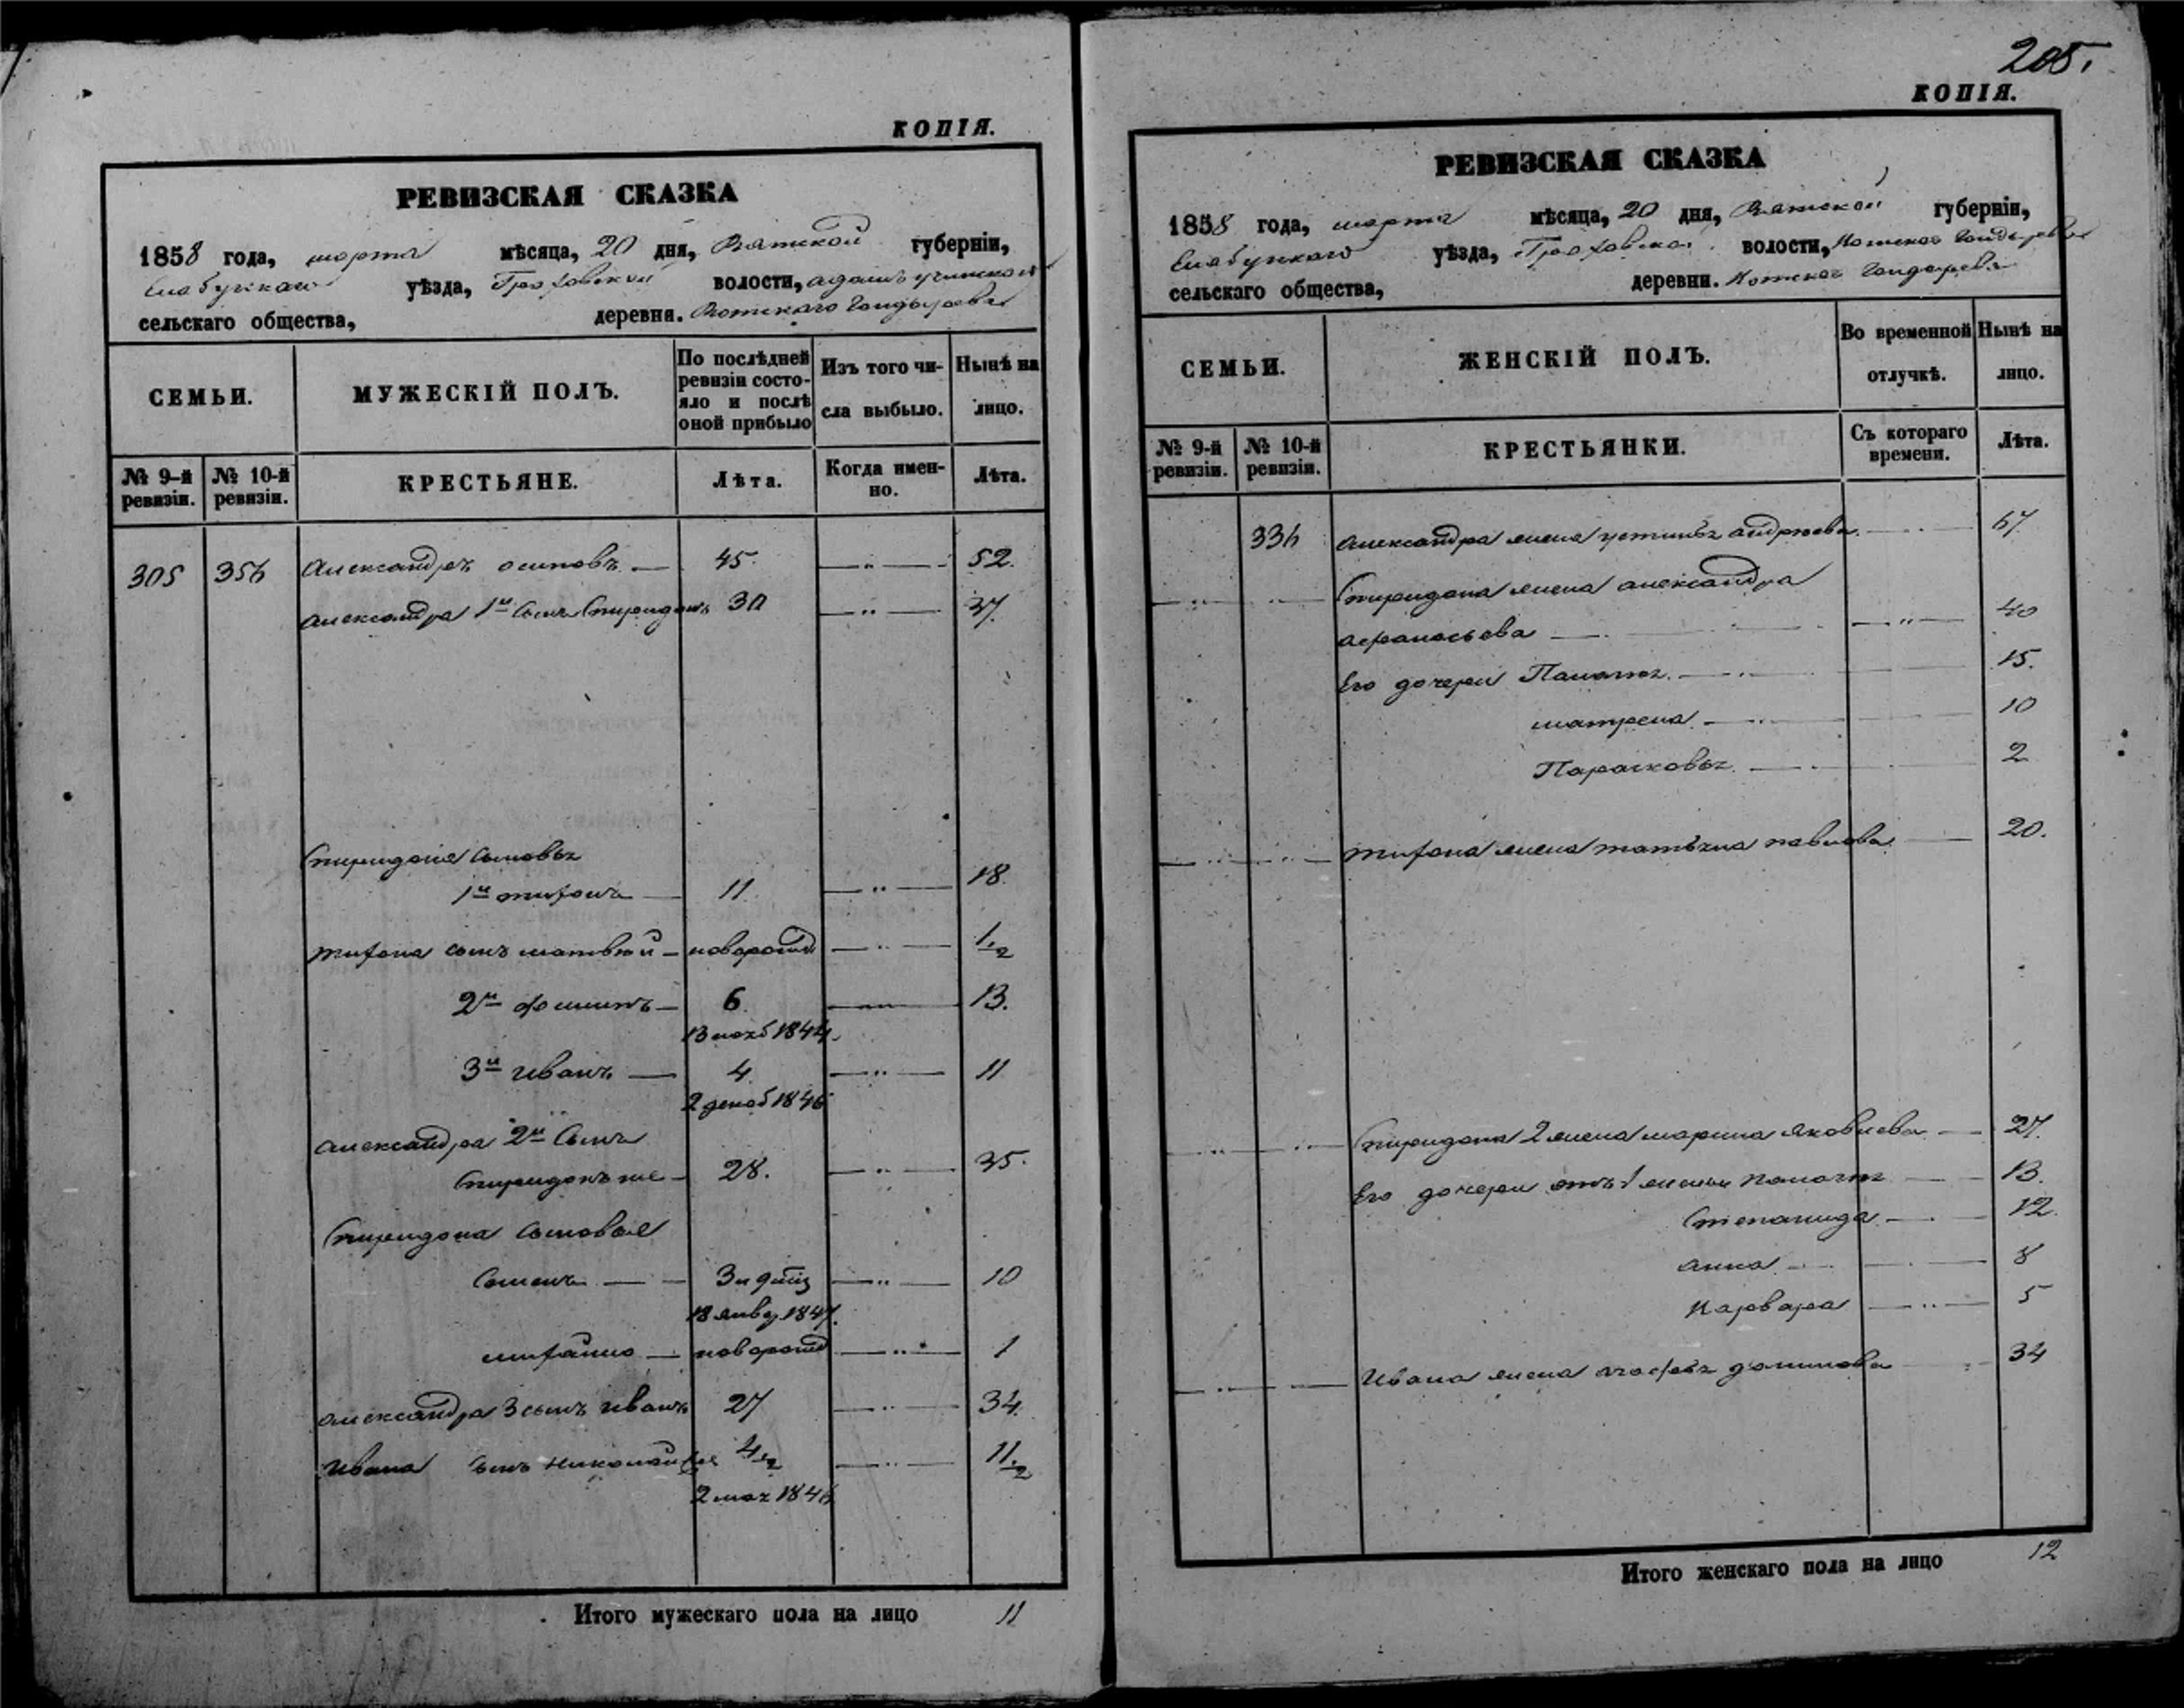 КОПІЯ.
РЕВИЗСКАЯ СКАЗКА
1858 года, марта мѣсяца, 20 дня, Вятской губерніи,
Елабужскаго уѣзда, Граховской волости,
сельскаго общества, деревни. Вотскаго Гондырева
СЕМЬИ.
МУЖЕСКІЙ ПОЛЪ.
По послѣдней ревизіи состояло и послѣ оной прибыло
Изъ того числа выбыло.
Нынѣ на лицо.
№ 9-й ревизіи.
№ 10-й ревизіи.
КРЕСТЬЯНЕ.
Лѣта.
Когда именно.
Лѣта.
305 356 Александръ осиповъ — 45. — „ — 52.
Александра 1й сынъ Спиридонъ 30 — „ — 37.
Спиридона сыновья
1й тифонъ — 11. — „ — 18.
тифона сынъ матвей — новорожд — „ — 1/2
2й — 6. — „ — 13.
13 нояб 1844.
3й иванъ — 4 — „ — 11
2 декаб 1846
Александра 2й сынъ
Спиридонъ же — 28. — „ — 35.
Спиридона сыновья
Семенъ — 3 н — „ — 10
18 янвр 1847.
— новорожд — „ — 1
александра 3 сынъ иванъ 27 — „ — 34.
Ивана сынъ николай 4 1/2 — „ — 11 1/2
2 мая 1846
Итого мужескаго пола на лицо 11
205.
КОПІЯ.
РЕВИЗСКАЯ СКАЗКА
1858 года, марта мѣсяца, 20 дня, Вятской губерніи,
Елабужскаго уѣзда, Граховской волости, Вотскаго Гондырева
сельскаго общества, деревни. Вотскаго Гондырева
СЕМЬИ.
ЖЕНСКІЙ ПОЛЪ.
Во временной отлучкѣ.
Нынѣ на лицо.
№ 9-й ревизіи.
№ 10-й ревизіи.
КРЕСТЬЯНКИ.
Съ котораго времени.
Лѣта.
336 Александра жена устинья андреева — 67.
Спиридона жена александра
афанасьева — „ — 40
Его дочери Палагея — 15.
матрена — 10
Парасковья — 2
тифона жена татьяна павлова — 20.
Спиридона 2 жена марина яковлева — 27.
Его дочери отъ 1 жены палагея — 13.
Степанида — 12.
анна — 8
варвара — „ — 5
Ивана жена агафья — 34
Итого женскаго пола на лицо 12